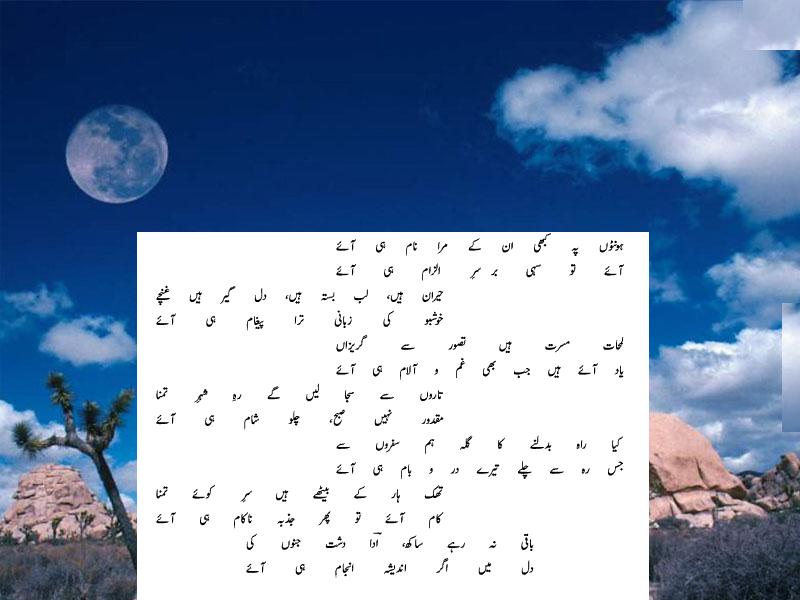 ہونٹوں پہ کبھی ان کے مرا نام ہی آئے
آئے تو سہی بر سرِ الزام ہی آئے
حیران ہیں، لب بستہ ہیں، دل گیر ہیں غنچے
خوشبو کی زبانی ترا پیغام ہی آئے
لمحات مسرت ہیں تصور سے گریزاں
یاد آئے ہیں جب بھی غم و آلام ہی آئے
تاروں سے سجا لیں گے رہِ شہرِ تمنا
مقدور نہیں صبح، چلو شام ہی آئے
کیا راہ بدلنے کا گلہ ہم سفروں سے
جس رہ سے چلے تیرے در و بام ہی آئے
تھک ہار کے بیٹھے ہیں سرِ کوئے تمنا
کام آئے تو پھر جذبہ ناکام ہی آئے
باقی نہ رہے ساکھ، اداؔ دشت جنوں کی
دل میں اگر اندیشہ انجام ہی آئے